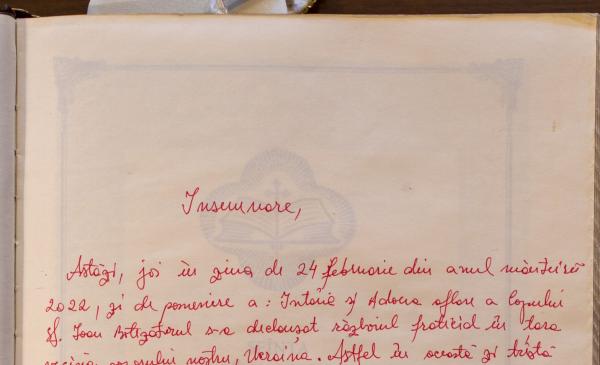 Insemnare,
Astăzi, joi în ziua de 24 februarie din anul mântuirii
2022, zi de pomenire a: Întâia și Adoua aflare a Capului
Sf. Ioan Botezătorul s-a declanșat războiul fratricid în țara
vecină orașului nostru, Ucraina. Astfel în această zi tristă